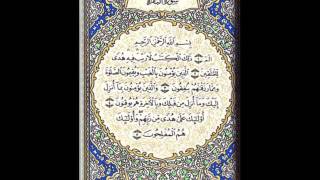 سورة البقرة
بِسْمِ اللَّهِ الرَّحْمَٰنِ الرَّحِيمِ
الٓمٓ ذَٰلِكَ الْكِتَٰبُ لَا رَيْبَ فِيهِ هُدًى
لِّلْمُتَّقِينَ الَّذِينَ يُؤْمِنُونَ بِالْغَيْبِ وَيُقِيمُونَ الصَّلَوٰةَ
وَمِمَّا رَزَقْنَٰهُمْ يُنفِقُونَ وَالَّذِينَ يُؤْمِنُونَ بِمَا أُنزِلَ
إِلَيْكَ وَمَا أُنزِلَ مِن قَبْلِكَ وَبِالْآخِرَةِ هُمْ يُوقِنُونَ
أُولَٰئِكَ عَلَىٰ هُدًى مِّن رَّبِّهِمْ وَأُولَٰئِكَ
هُمُ الْمُفْلِحُونَ